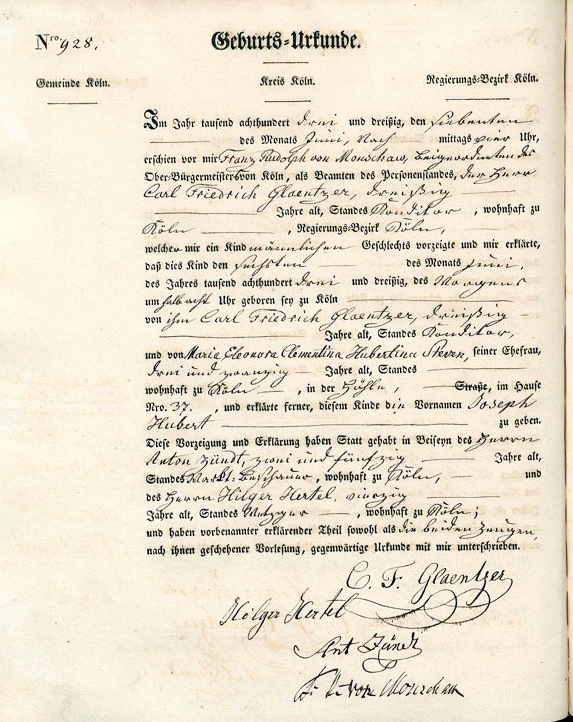 Nro. 928. Geburts-Urkunde.
Gemeinde Köln. Kreis Köln. Regierungs-Bezirk Köln.
Im Jahr tausend achthundert drei und dreißig, den siebenten
des Monats Juni, Nach mittags vier Uhr,
erschien vor mir Franz Rudolph von Monschaw, Beigeordneten des
Ober-Bürgermeisters von Köln, als Beamten des Personenstandes, der Herr
Carl Friedrich Glaentzer, dreißig
Jahre alt, Standes Konditor, wohnhaft zu
Köln, Regierungs-Bezirk Köln,
welcher mir ein Kind männlichen Geschlechts vorzeigte und mir erklärte,
daß dies Kind den sechsten des Monats Juni,
des Jahres tausend achthundert drei und dreißig, des Morgens
um halb acht Uhr geboren sey zu Köln
von ihm Carl Friedrich Glaentzer, dreißig
Jahre alt, Standes Konditor,
und von Maria Eleonora Clementina Hubertina Steven, seiner Ehefrau,
drei und zwanzig Jahre alt, Standes
wohnhaft zu Köln, in der Höhle, Straße, im Hause
Nro. 37., und erklärte ferner, diesem Kinde die Vornamen Joseph
Hubert zu geben.
Diese Vorzeigung und Erklärung haben Statt gehabt in Beiseyn des Herrn
Anton Zündt, zwei und fünfzig Jahre alt,
Standes Markt-Beschauer, wohnhaft zu Köln, und
des Herrn Hilger Hertel, vierzig
Jahre alt, Standes Metzger, wohnhaft zu Köln;
und haben vorbenannter erklärender Theil sowohl als die beiden Zeugen,
nach ihnen geschehener Vorlesung, gegenwärtige Urkunde mit mir unterschrieben.
C. F. Glaentzer
Hilger Hertel
Ant Zündt
F. R. von Monschaw